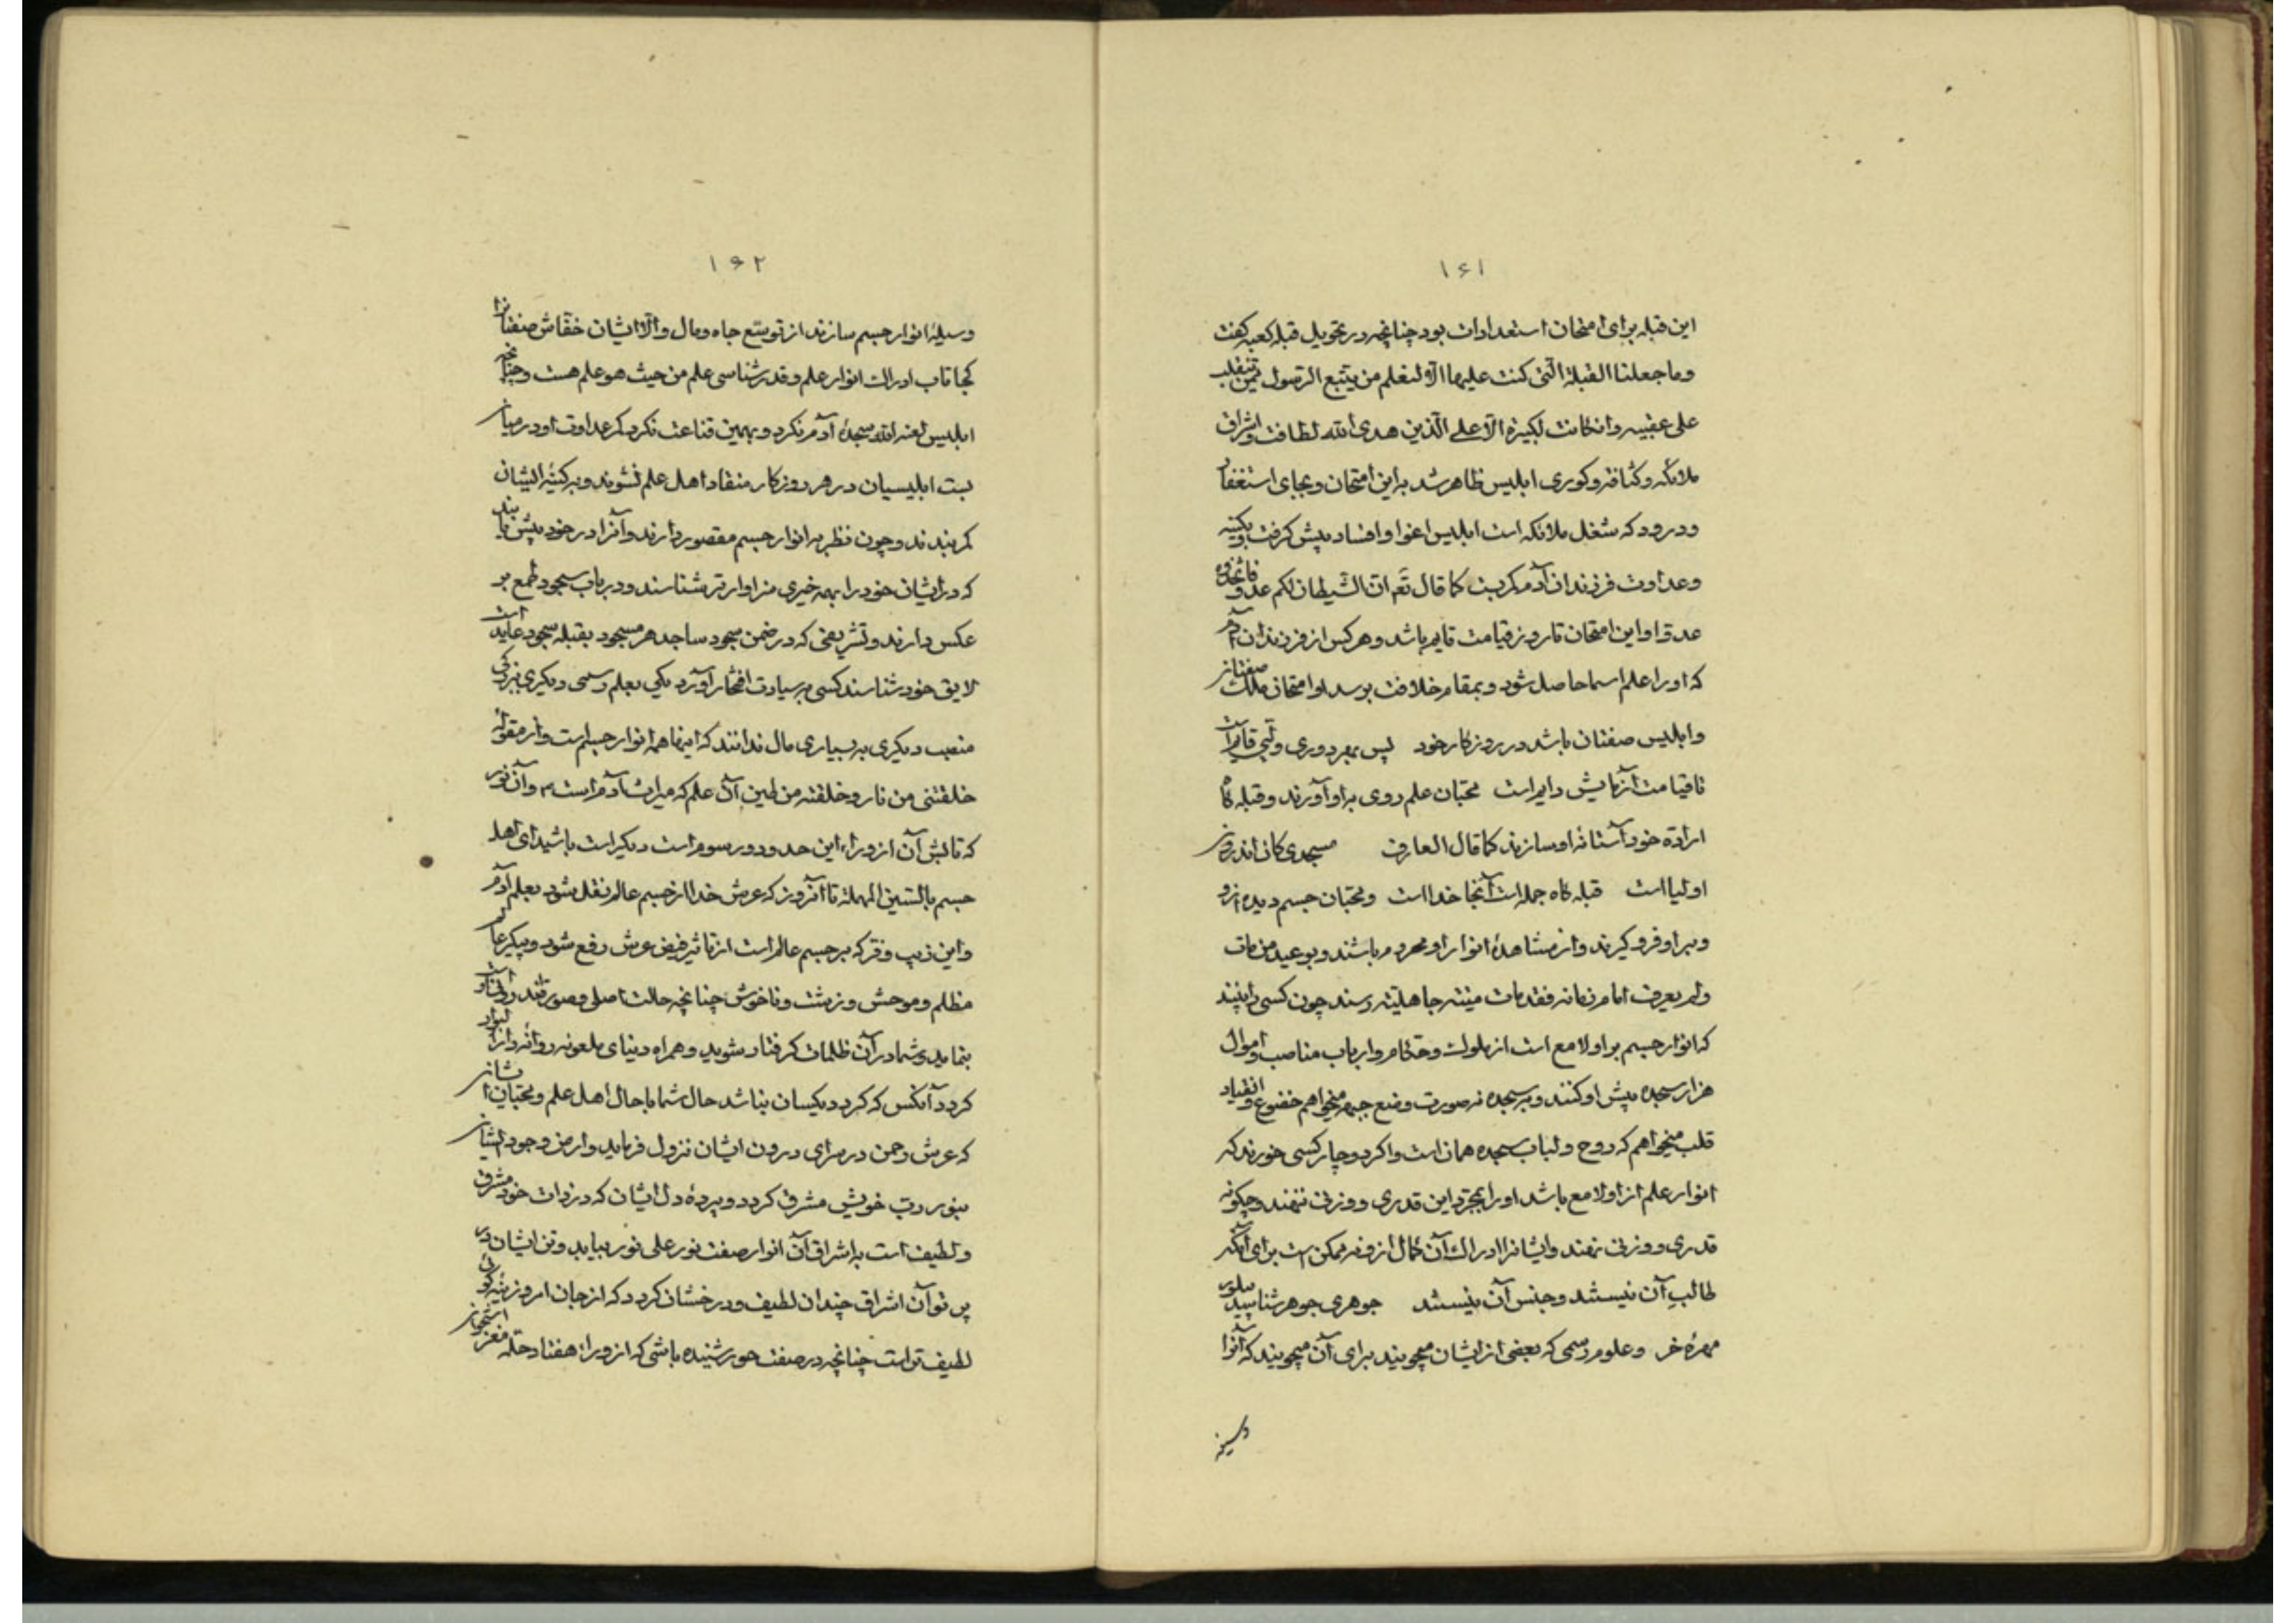 ۱۶۱
این قبله برای امتحان استعدادات بود چنانچه در تحویل قبله کعبه گفت
وما جعلنا القبلة الّتی کنت علیها الّا لنعلم من یتّبع الرّسول ممّن ینقلب
علی عقبیه وان کانت لکبیرة الّا علی الّذین هدی الله لطافت و اشراق
ملائکه و کثافت و کوری ابلیس ظاهر شد به این امتحان و بجای استغفار
و درود که شغل ملائکه است ابلیس اغوا و افساد پیش گرفت و بکینه
وعداوت فرزندان آدم کمر بست کما قال تع انّ الشّیطان لکم عدوّ فاتّخذوه
عدوّا و این امتحان تا روز قیامت قایم باشد و هر کس از فرزندان آدم
که او را علم اسما حاصل شود و بمقام خلافت برسد او امتحان ملک صفتان
وابلیس صفتان باشد در روزکار خود پس بهر دوری ولیّی قایم است
تا قیامت آزمایش دایم است محبّان علم روی به او آورند و قبله گاه
ارادة خود آستانه او سازند کما قال العارف مسجدی کان اندرون
اولیا است قبله گاه جمله است آنجا خدا است و محبّان جسم دیده از و
و بر او فرو گیرند و از مشاهدهٔ انوار او محروم باشند و بوعید من مات
ولم یعرف امام زمانه فقد مات میتته جاهلیّته رسند چون کسی را بینند
که انوار جسم بر او لامع است از ملوک و حکّام و ارباب مناصب و اموال
هزار سجده پیش او کنند و به سجده نه صورت وضع جبهه میخواهم خضوع و انقیاد
قلب میخواهم که روح و لباب سجده همان است و اگر دوچار کسی خورند که
انوار علم از او لامع باشد او را بمجرّد این قدری و وزنی ننهند و چگونه
قدری و وزنی نهند و ایشانرا ادراک آن کمال از و نه ممکن است برای آنکه
طالب آن نیستند و جنس آن نیستند جوهری جوهر شناسد پیله‌ور
مهرهٔ خر و علوم رسمی که بعضی از ایشان میجویند برای آن میجویند که آنرا
وسیلهٔ
۱۶۲
وسیلهٔ انوار جسم سازند از توسّع جاه و مال و الّا ایشان خفّاش صفتانرا
کجا تاب ادراک انوار علم و قدر شناسی علم من حیث هو علم هست و چنانچه
ابلیس لعنه الله سجدهٔ آدم نکرد و بهمین قناعت نکرد کمر عداوت او در میان
بست ابلیسیان در هر روزکار منقاد اهل علم نشوند و به کینهٔ ایشان
کمر بندند و چون نظر به انوار جسم مقصور دارند و آنرا در خود بیش یابند
که در ایشان خود را بهمه خیری سزاوارتر شناسند و در باب سجود طمع بر
عکس دارند و تشریفی که در ضمن سجود ساجد هر مسجود بقبله سجود عاید است
لایق خود شناسند کسی به سیادت افتخار آورد یکی بعلم رسمی دیگری بزرگی
منصب دیگری به بسیاری مال ندانند که اینها همه انوار جسم است و از مقوله
خلقتنی من نار وخلقته من طین آن علم که میراث آدم است و آن نور
که تابش آن از وراء این حدود و رسوم است دیگر است باشید ای اهل
جسم بالسّین المهملة تا آنروز که عرش خدا از جسم عالم نقل شود بعلم آدم
و این زیب و فرّ که بر جسم عالم است از تاثیر فیض عرش رفع شود و پیکر عالم
مظلم و موحش و زشت و ناخوش چنانچه حالت اصلی و صورت
بنماید و شما در آن ظلمات گرفتار شوید و همراه دنیای ملعونه روانهٔ دار البوار
گردد آنکس که گردد یکسان نباشد حال شما با حال اهل علم و محبّان ایشان
که عرش رحمن در سرای درون ایشان نزول فرماید و ارض وجود ایشان
بنور ربّ خویش مشرق گردد و پردهٔ دل ایشان که در ذات خود مشرق
و لطیف است به اشراق آن انوار صفت نور علی نور بیاید و تن ایشان در
پرتو آن اشراق چندان لطیف و درخشان گردد که از جان امروزینهٔ
لطیف‌تر است چنانچه در صفت حور شنیده باشی که از وراء هفتاد حلّه مغز استخوان